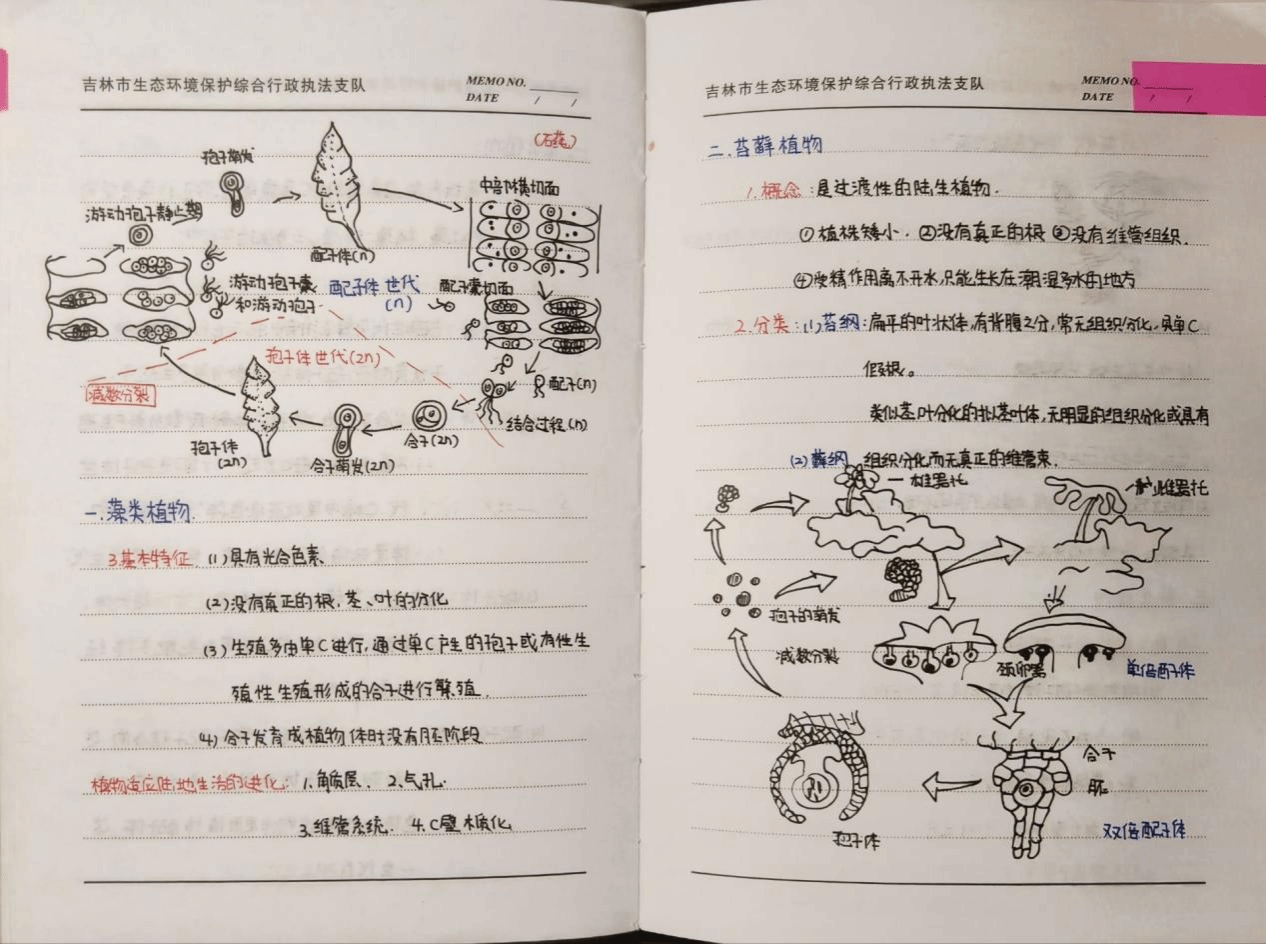 吉林市生态环境保护综合行政执法支队
MEMO NO.
DATE / /
(石莼)
孢子萌发
游动孢子静止期
配子体(n)
中部横切面
游动孢子囊
和游动孢子
配子体世代
(n)
配子囊切面
孢子体世代(2n)
减数分裂
配子(n)
结合过程(n)
合子(2n)
合子萌发(2n)
孢子体
(2n)
一.藻类植物.
3.基本特征. (1)具有光合色素
(2)没有真正的根,茎、叶的分化
(3)生殖多由单C进行,通过单C产生的孢子或有性生
殖性生殖形成的合子进行繁殖.
4)合子发育成植物体时没有胚阶段
植物适应陆地生活的进化. 1.角质层. 2.气孔.
3.维管系统. 4.C壁木质化
吉林市生态环境保护综合行政执法支队
MEMO NO.
DATE / /
二.苔藓植物
1.概念:是过渡性的陆生植物.
①植株矮小. ②没有真正的根 ③没有维管组织.
④受精作用离不开水,只能生长在潮湿多水的地方
2.分类:(1)苔纲:扁平的叶状体,有背腹之分,常无组织分化,具单C
假根。
类似茎、叶分化的拟茎叶体,无明显的组织分化或具有
(2)藓纲 组织分化而无真正的维管束.
雄器托
雌器托
孢子的萌发
减数分裂
颈卵器
单倍配子体
合子
胚
孢子体
双倍配子体